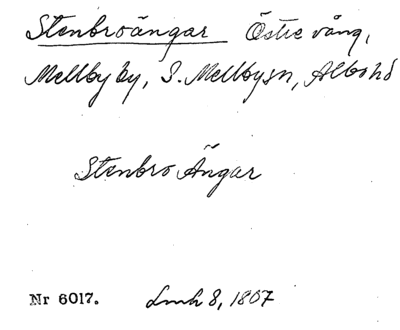 Stenbroängar Östre vång,
Mellby by, S. Mellbysn, Albohd
Stenbro Ängar
Nr 6017. Lmh 8, 1807